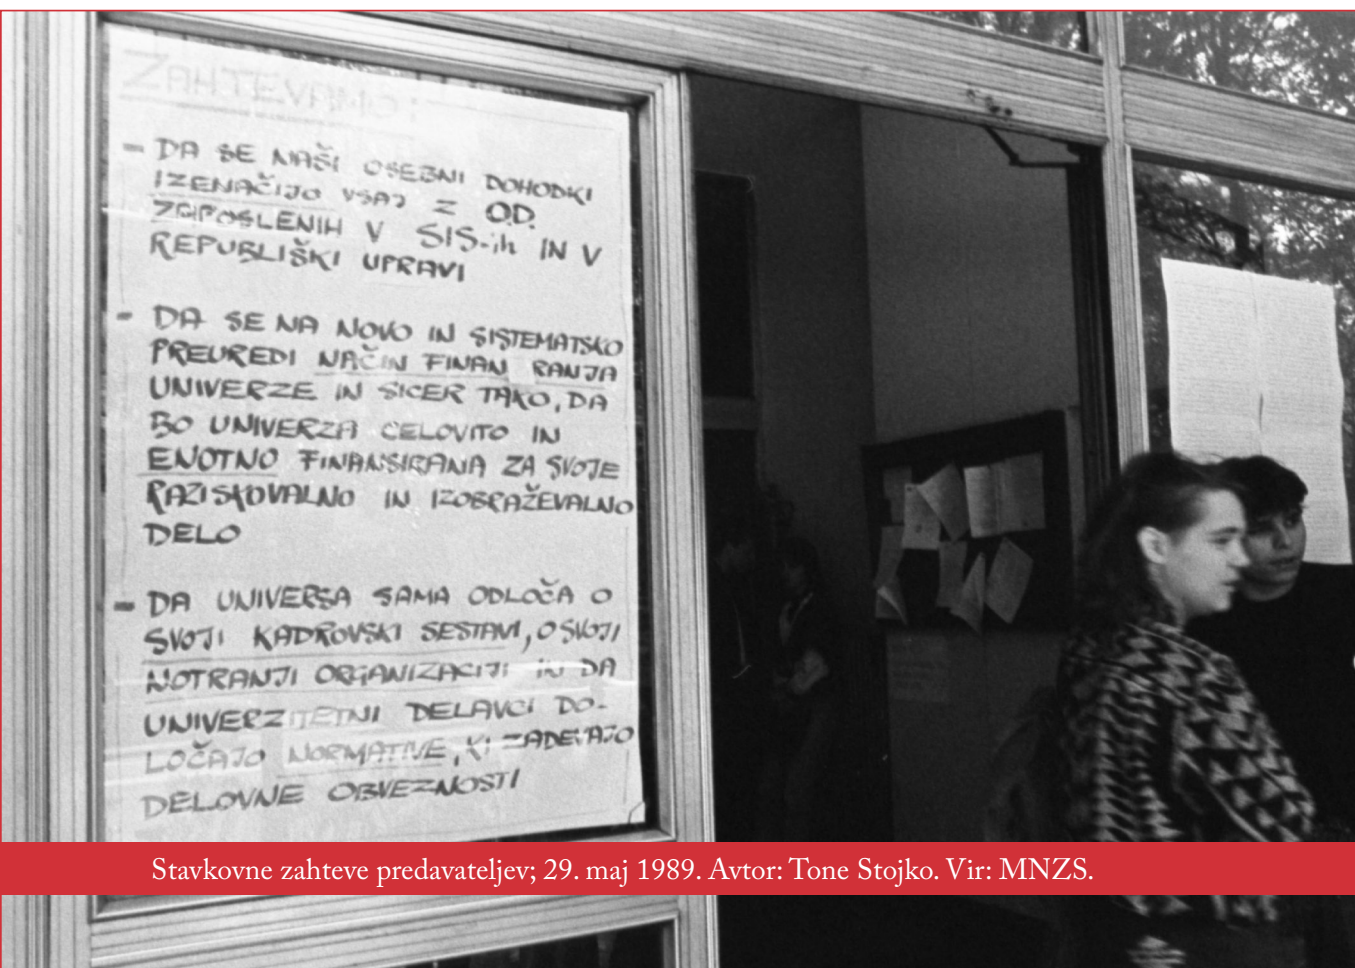 ZAHTEVAMO:
- DA SE NAŠI OSEBNI DOHODKI
IZENAČIJO VSAJ Z O.D.
ZAPOSLENIH V SIS-ih IN V
REPUBLIŠKI UPRAVI
- DA SE NA NOVO IN SISTEMATSKO
PREUREDI NAČIN FINAN RANJA
UNIVERZE IN SICER TAKO, DA
BO UNIVERZA CELOVITO IN
ENOTNO FINANSIRANA ZA SVOJE
RAZISKOVALNO IN IZOBRAŽEVALNO
DELO
- DA UNIVERSA SAMA ODLOČA O
SVOJI KADROVSKI SESTAVI, O SVOJI
NOTRANJI ORGANIZACIJI IN DA
UNIVERZITETNI DELAVCI DO-
LOČAJO NORMATIVE, KI ZADEVAJO
DELOVNE OBVEZNOSTI
Stavkovne zahteve predavateljev; 29. maj 1989. Avtor: Tone Stojko. Vir: MNZS.